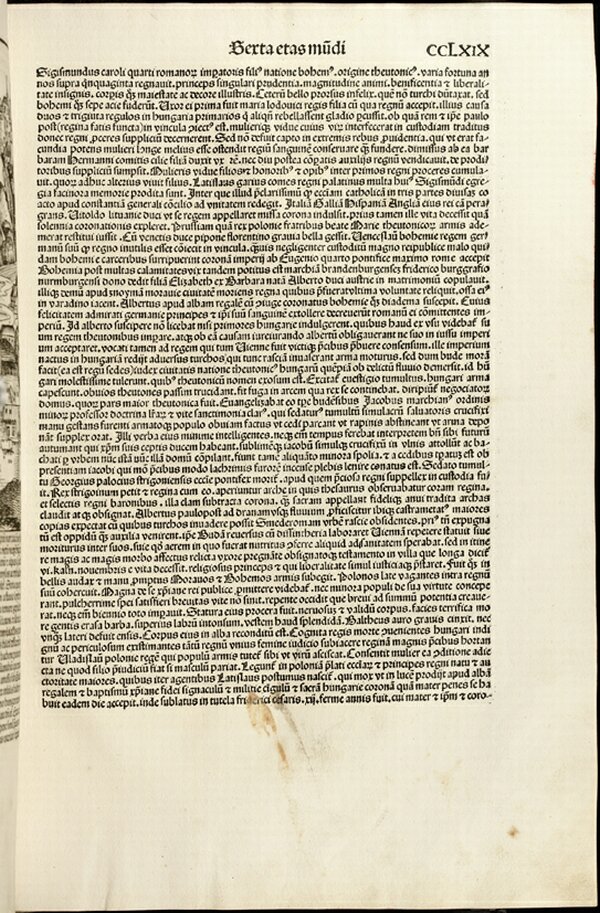 Sexta etas mūdi CCLXIX
Sigismundus caroli quarti romanoꝝ impatoris filiꝰ natione bohemꝰ. origine theutonicꝰ. varia fortuna an
nos supra qnquaginta regnauit. princeps singulari prudentia. magnitudine animi. beneficentia ⁊ liberali-
tate insignis. corpis qꝫ maiestate ac decore illustris. Ceterū bello prorsus infelix. quē nō turchi dūtaxat. sed
bohemi qꝫ sepe acie fuderūt. Uxor ei prima fuit maria lodouici regis filia cū qua regnū accepit. illius causa
duos ⁊ triginta regulos in hungaria primarios q̇ aliqñ rebellassent gladio pcussit. ob quā rem ⁊ ipē paulo
post (regina fatis functa) in vincula . mulieriqꝫ vidue cuius vir interfecerat in custodiam traditus
donec regni pceres suppliciū decernerent. Sed nō defuit capto in extremis rebus puidentia. qui vt erat fa-
cundia potens mulieri longe melius esse ostendit regiū sanguinē conseruare qꝫ fundere. dimissus ab ea bar
baram Hermanni comitis cilie filiā duxit vxorē. nec diu postea auxilijs regnū vendicauit. de prodi
toribus suppliciū sumpsit. Mulieris vidue filios honoribꝰ ⁊ opibꝰ inter primos regni proceres cumula-
uit. quoꝝ adhuc alterius viuit filius. Latislaus garius comes regni palatinus multa huiꝰ Sigismūdi egre-
gia facinora memorie prodita sunt. Inter que illud pclarissimū qꝫ ecciam catholicā in tris partes diuisaꝫ co
acto apud constantiā generali cōcilio ad vnitatem redegit. Italiā Galliā Hispaniā Angliā eius rei cā pera-
grans. Uitoldo lituanie duci vt se regem appellaret missa corona indulsit. prius tamen ille vita decessit quā
solennia coronationis expleret. Prussiam quā rex polonie fratribus beate Marie theutonicoꝝ armis ade-
merat restitui iussit. Cū venetis duce pipone florentino grauia bella gessit. Uenceslaū bohemie regem ger-
manū suū qꝫ regno inutilis esset cōiecit in vincula. quis negligenter custoditū magno reipublice malo qui
dam bohemi e carceribus surripuerint coronā imperij ab Eugenio quarto pontifice maximo rome accepit
Bohemia post multas calamitates vix tandem potitus est marchiā brandenburgenseꝫ friderico burggrafio
nurmburgensi dono dedit filiā Elizabeth ex Barbara natā Alberto duci austrie in matrimoniū copulauit.
illiqꝫ demū apud znoymā morauie ciuitatē moriens regna quibus pfuerat vltima volūtate reliquit. ossa eiꝰ
in varadino iacent. Albertus apud albam regalē cū piuge coronatus bohemie qꝫ diadema suscepit. Euius
felicitatem admirati germanie principes ⁊ ipi suū sanguinē extollere decreuerūt romanū ei cōmittentes im-
periū. Id alberto suscipere nō licebat nisi primores hungarie indulgerent. quibus haud ex vsu videbaꝉ su
um regem theutonibus imparere. atqꝫ ob eā causam iureiurando albertū obligauerant ne suo in iussu imperi
um acceptaret. vocati tamen ad regem qui tum Uienne fuit victiqꝫ pcibus pbuere consensum. ille imperium
nactus in hungariā redijt aduersus turchos qui tunc rasciā inuaserant arma moturus. sed dum bude morā
facit (ea est regū sedes) iudex ciuitatis natione theutonicꝰ hungarū quēpiā ob relictū fluuio demersit. id hū
gari molestissime tulerunt. quibꝰ theutonicū nomen exosum est. Excitaꝉ euestigio tumultus. hungari arma
capescunt. obuios theutones passim trucidant. fit fuga in arcem qua rex se continebat. diripiūꝉ negociatoꝝ
domus. quoꝝ pars maior theutonica fuit. Euangelizabat eo tpe budensibus Jacobus marchianꝰ ordinis
minoꝝ professor doctrina lraꝝ ⁊ vite sanctimonia clarꝰ. qui sedaturꝰ tumultū simulacrū saluatoris crucifixi
manu gestans furenti armatoqꝫ populo obuiam factus vt cedi parcant vt rapinis abstineant vt arma depo
nāt supplex orat. Illi verba eius minime intelligentes. neqꝫ em tempus ferebat interpretem hn sibi futurū
autumant qui xpm suis ceptis ducem habeant. sublimeqꝫ iacobū simulqꝫ crucifixū in vlnis attollūt ac ba-
chati p vrbem nūc istā nūc illā domū cōpilant. fiunt tamē aliquāto minora spolia. ⁊ a cedibus tpatuꝫ est ob
presentiam iacobi qui mō pcibus modo lachrimis furorē inceuse plebis lenire conatus est. Sedato tumul-
tu Georgius palocius strigoniensis eccie pontifex morit. apud quem pciosa regni suppellex in custodia fu-
it. Rex strigonium petit ⁊ regina cum eo. aperiuntur arche in quis thesaurus obseruabatur coram regina.
et selectis regni baronibus. illa clam subtracta corona. qꝫ sacram appellant fidelicqꝫ anui tradita archas
claudit atqꝫ obsignat. Albertus paulopost ad draham vsqꝫ fluuium pficiscitur ibiqꝫ castrametatꝰ maiores
copias expectat cū quibus turchos inuadere possit Smederomam vrbē rascie obsidentes. priꝰ tñ expugna
tū est oppidū qꝫ auxilia venirent. ipē Budā reuersus cū dissinteria laboraret Uiennā repetere statuit siue
moriturus inter suos. siue qꝫ aerem in quo fuerat nutritus pferre aliquid ad sanitatem sperabat. sed in itine
re magis ac magis morbo affectus relicta vxore pregnāte obsignatoqꝫ testamento in villa que longa diciꝉ
vi. kaln. nouembris e vita decessit. religiosus princeps ⁊ qui liberalitate simul iusticiaqꝫ pstaret. Fuit qꝫ in
bellis audax ⁊ manu promptus Morauos ⁊ Bohemos armis subegit. Polonos late vagantes intra regnū
suū cohercuit. Magna de se xpiane rei publice pmittere videbaꝉ. nec minora populi de sua virtute concepe
rant. pulcherrime spei satisfieri breuitas vite nō sinit. repente occidit que breui ad summū potentia creaue-
rat. neqꝫ em biennio toto impauit. Statura eius procera fuit. neruosuꝫ ⁊ validū corpus. facies terrifica mo
re gentis erasa barba. superius labrū intonsum. vestem haud splendidā. Baltheus auro grauis cinxit. nec
vnqꝫ lateri defuit ensis. Corpus eius in alba reconditū est. Cognita regis morte puenientes hungari indi
gnū ac periculosum existimantes tātū regnū vnius femine iudicio subiacere reginā magnis pcibus hortan
tur Uladislaū polonie regē qui populū armis tuteꝉ sibi vt virū asciscat. Consentit mulier ea pditione adie
cta ne quod filio piudiciū fiat si masculū pariat. Legunꝉ in poloniā plati ecciaꝝ ⁊ principes regni natu ⁊ au
ctoritate maiores. quibus iter agentibus Latislaus postumus nasciꝉ. qui mox vt in lucē prodijt apud albā
regalem ⁊ baptismū xpiane fidei signaculū ⁊ militie cigulū ⁊ sacrā hungarie coronā quā mater penes se ha
buit eadem die accepit. inde sublatus in tutela friderici cesaris. xij. ferme annis fuit. cui mater ⁊ ipm ⁊ coro-